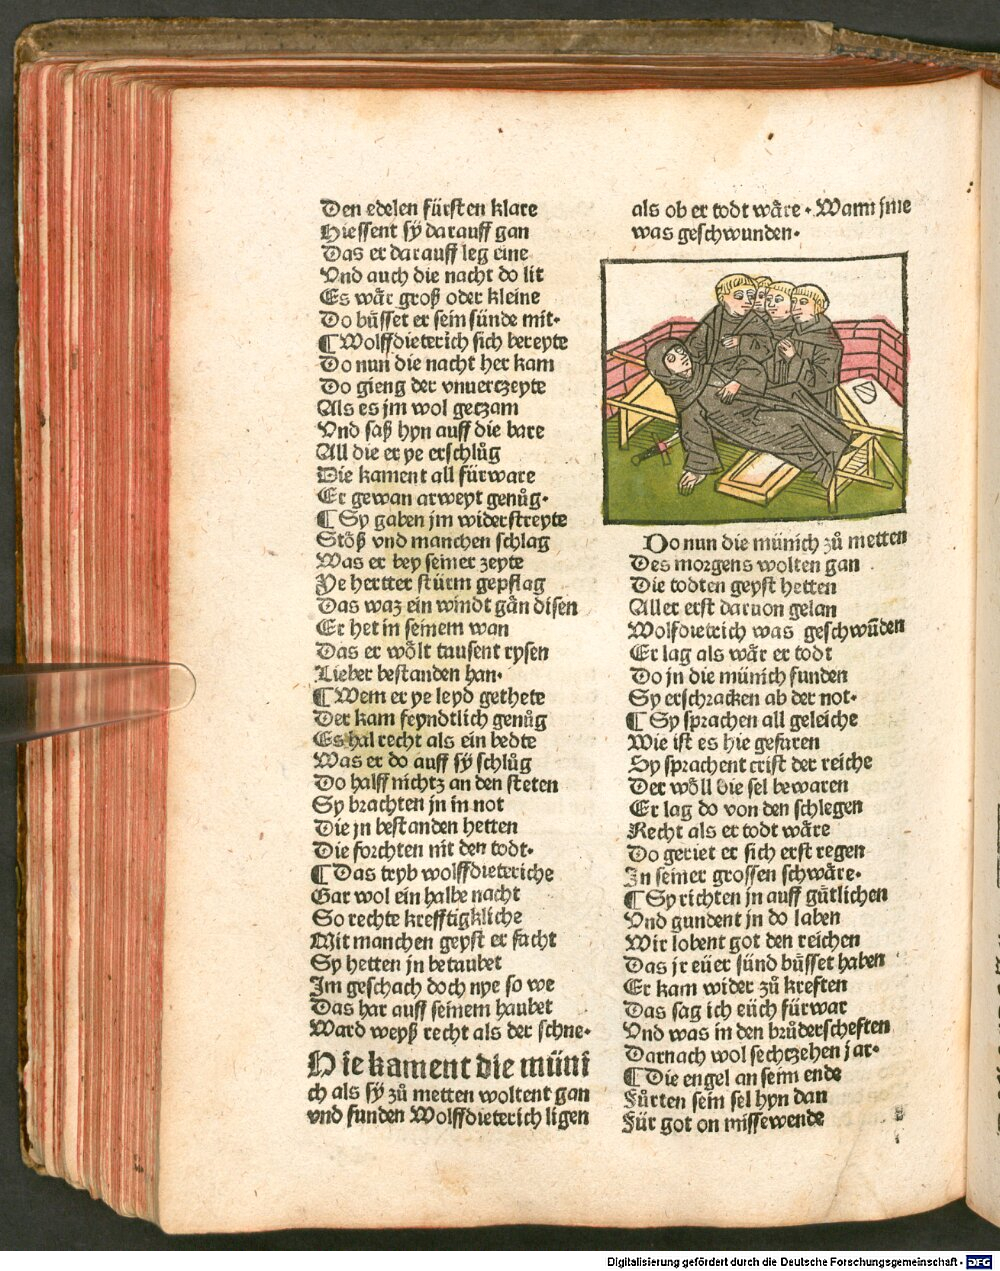 Den edelen fürsten klare
Hiessent sÿ darauff gan
Das er darauff leg eine
Vnd auch die nacht do lit
Es wär groß oder kleine
Do büsset er sein sünde mit.
¶ Wolffdieterich sich bereyte
Do nun die nacht her kam
Do gieng der vnuerczeyte
Als es jm wol geczam
Vnd saß hyn auff die bare
All die er ye erschlůg
Die kament all fürware
Er gewan arweyt genůg.
¶ Sy gaben jm widerstreyte
Stöß vnd manchen schlag
Was er bey seiner zeyte
Ye hertter stürm gepflag
Das waz ein windt gän disen
Er het in seinem wan
Das er wölt tausent rysen
Lieber bestanden han.
¶ Wem er ye leyd gethete
Der kam feyndtlich genůg
Es hal recht als ein bedte
Was er do auff sÿ schlůg
Do halff nichtz an den steten
Sy brachten jn in not
Die jn bestanden hetten
Die forchten nit den todt.
¶ Das tryb wolffdieteriche
Gar wol ein halbe nacht
So rechte krefftigkliche
Mit manchen geyst er facht
Sy hetten jn betaubet
Im geschach doch nye so we
Das har auff seinem haubet
Ward weyß recht als der schne.
Hie kament die müni
ch als sÿ zů metten woltent gan
vnd funden Wolffdieterich ligen
als ob er todt wäre. Wann jme
was geschwunden.
Do nun die münich zů metten
Des morgens wolten gan
Die todten geyst hetten
Aller erst daruon gelan
Wolfdietrich was geschwūden
Er lag als wär er todt
Do jn die münich funden
Sy erschracken ab der not.
¶ Sy sprachen all geleiche
Wie ist es hie gefaren
Sy sprachent crist der reiche
Der wöll die sel bewaren
Er lag do von den schlegen
Recht als er todt wäre
Do geriet er sich erst regen
In seiner grossen schwäre.
¶ Sy richten jn auff gütlichen
Vnd gundent jn do laben
Wir lobent got den reichen
Das jr eüer sünd büsset haben
Er kam wider zů kreften
Das sag ich eüch fürwar
Vnd was in den brůderscheften
Darnach wol sechtzehen jar.
¶ Die engel an seim ende
Fůrten sein sel hyn dan
Für got on missewende
Digitalisierung gefördert durch die Deutsche Forschungsgemeinschaft - DFG